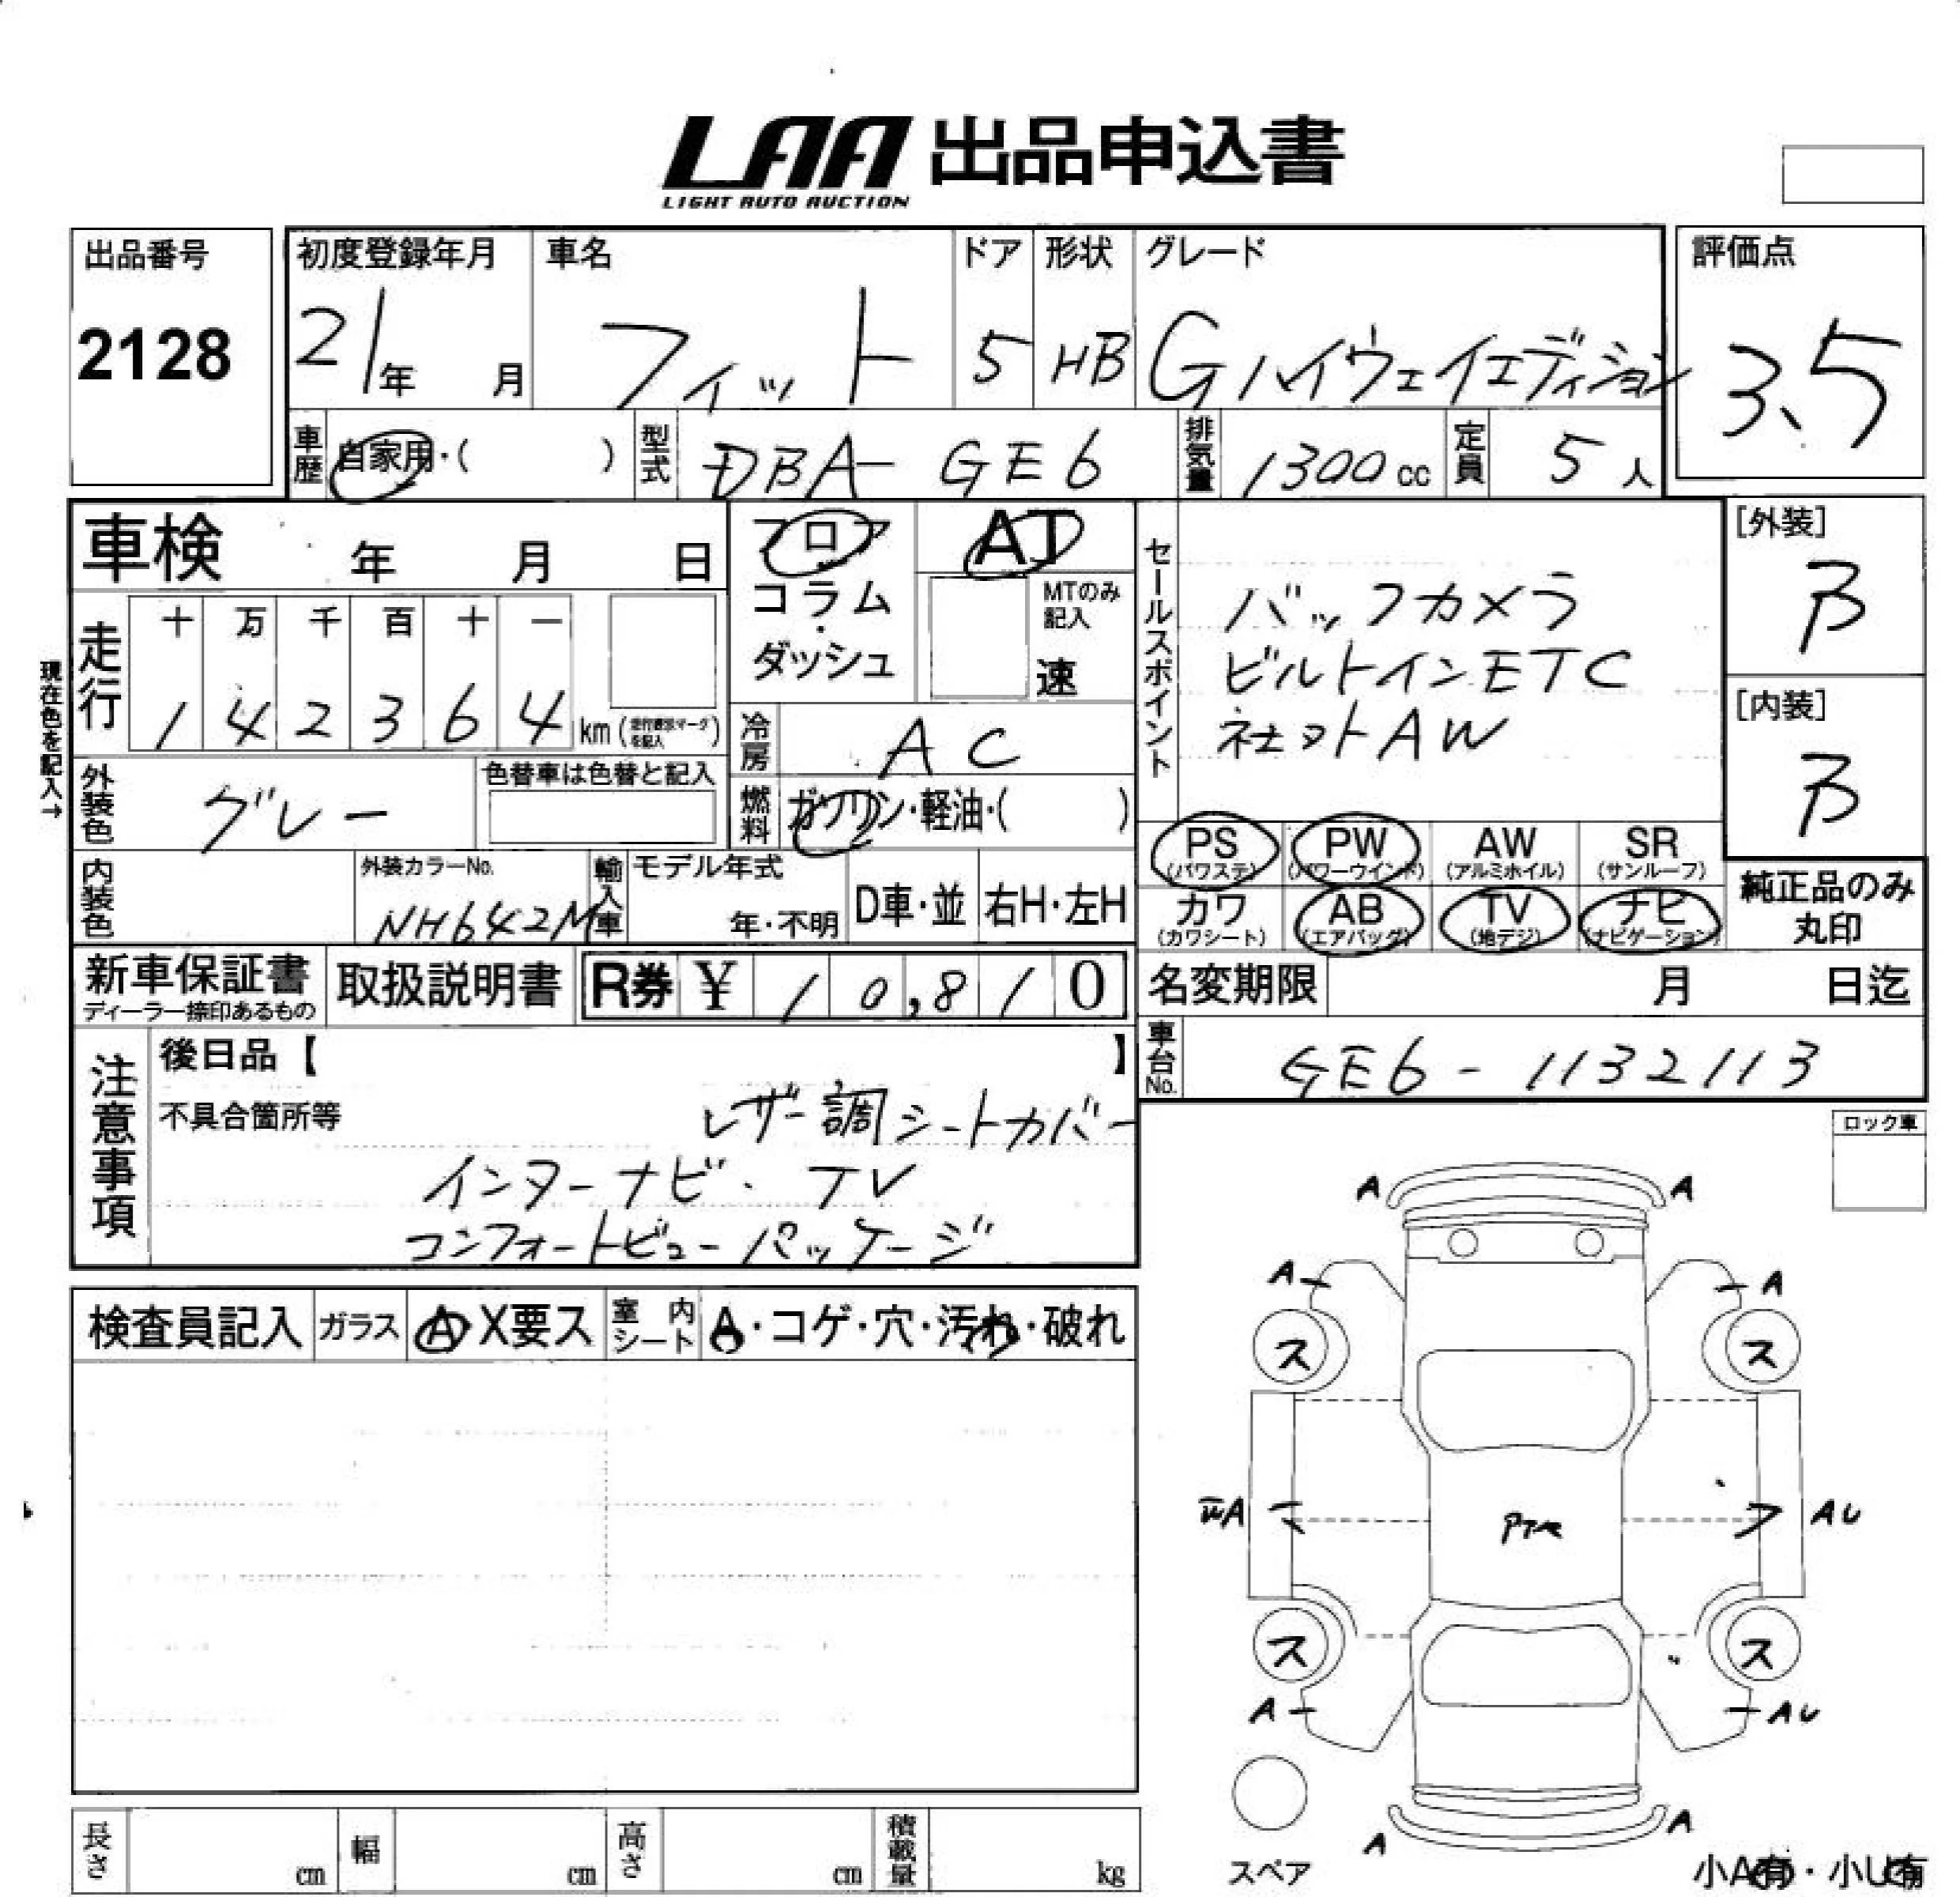 LAA 出品申込書
LIGHT AUTO AUCTION
出品番号
2128
初度登録年月
21年 月
車名
フィット
ドア
5
形状
HB
グレード
Gハイウェイエディション
評価点
3.5
車歴
自家用・( )
型式
DBA-GE6
排気量
1300cc
定員
5人
車検 年 月 日
フロア
コラム・
ダッシュ
AT
MTのみ
記入
速
セールスポイント
バックカメラ
ビルトインETC
社外AW
[外装]
B
[内装]
B
現在色を記入→
走行
十 万 千 百 十 一
1 4 2 3 6 4 km
冷房
AC
外装色
グレー
色替車は色替と記入
燃料
ガソリン・軽油・( )
PS
(パワステ)
PW
(パワーウインド)
AW
(アルミホイル)
SR
(サンルーフ)
内装色
外装カラーNo.
NH642M
輸入車
モデル年式
年・不明
D車・並
右H・左H
カワ
(カワシート)
AB
(エアバッグ)
TV
(地デジ)
ナビ
(ナビゲーション)
純正品のみ
丸印
新車保証書
ディーラー捺印あるもの
取扱説明書
R券 ¥ 10,810
名変期限 月 日迄
車台No.
GE6-1132113
注意事項
後日品【 】
不具合箇所等
レザー調シートカバー
インターナビ・TV
コンフォートビューパッケージ
ロック車
検査員記入
ガラス
A X要ス
室内
シート
A・コゲ・穴・汚れ・破れ
A A
A A
ス ス
A AU
ス ス
A AU
A A
スペア
長さ cm
幅 cm
高さ cm
積載量 kg
小A有・小U有